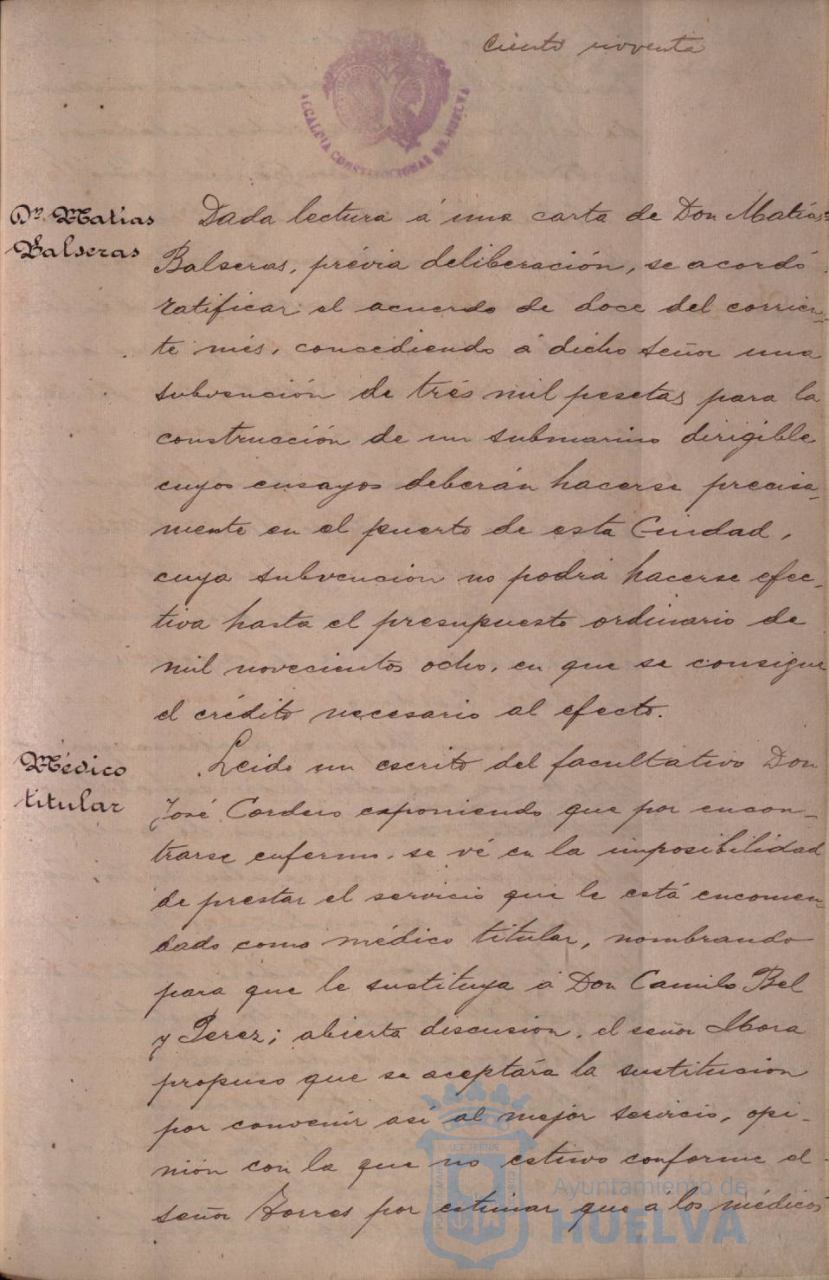 Ciento noventa
ALCALDIA CONSTITUCIONAL DE HUELVA
Dn. Matias
Balseras
Dada lectura á una carta de Don Matías
Balseras, prévia deliberación, se acordó
ratificar el acuerdo de doce del corrien-
te més, concediendo á dicho señor una
subvención de trés mil pesetas para la
construcción de un submarino dirigible
cuyos ensayos deberán hacerse precisa-
mente en el puerto de esta Ciudad,
cuya subvencion no podrá hacerse efec-
tiva hasta el presupuesto ordinario de
mil novecientos ocho, en que se consigne
el crédito necesario al efecto.
Médico
titular
Leido un escrito del facultativo Don
José Cordero exponiendo que por encon-
trarse enfermo, se vé en la imposibilidad
de prestar el servicio que le está encomen-
dado como médico titular, nombrando
para que le sustituya á Don Camilo Bel
y Perez; abierta discusion, el señor Mora
propuso que se aceptára la sustitucion
por convenir así al mejor servicio, opi-
nión con la que no estuvo conforme el
señor Torres por estimar que á los médicos
Ayuntamiento de
HUELVA